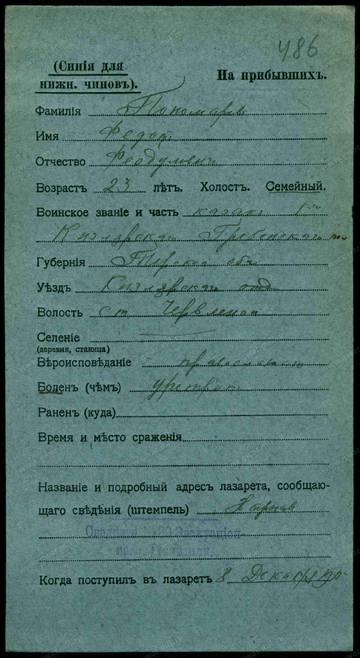 486
(Синія для
нижн. чиновъ).
На прибывшихъ.
Фамилія Пономарев
Имя Федот
Отчество Феодулович
Возрастъ 23 лѣтъ. Холостъ. Семейный.
Воинское званіе и часть казак 1го
Кизлярскаго Гребенского
Губернія Терская обл
Уѣздъ Кизлярскаго отд
Волость ст. Червленой
Селеніе
(деревня, станица)
Вѣроисповѣданіе православный
Боленъ (чѣмъ)
Раненъ (куда)
Время и мѣсто сраженія
Названіе и подробный адресъ лазарета, сообщаю-
щаго свѣдѣнія (штемпель)
Когда поступилъ въ лазаретъ 8 Декабря